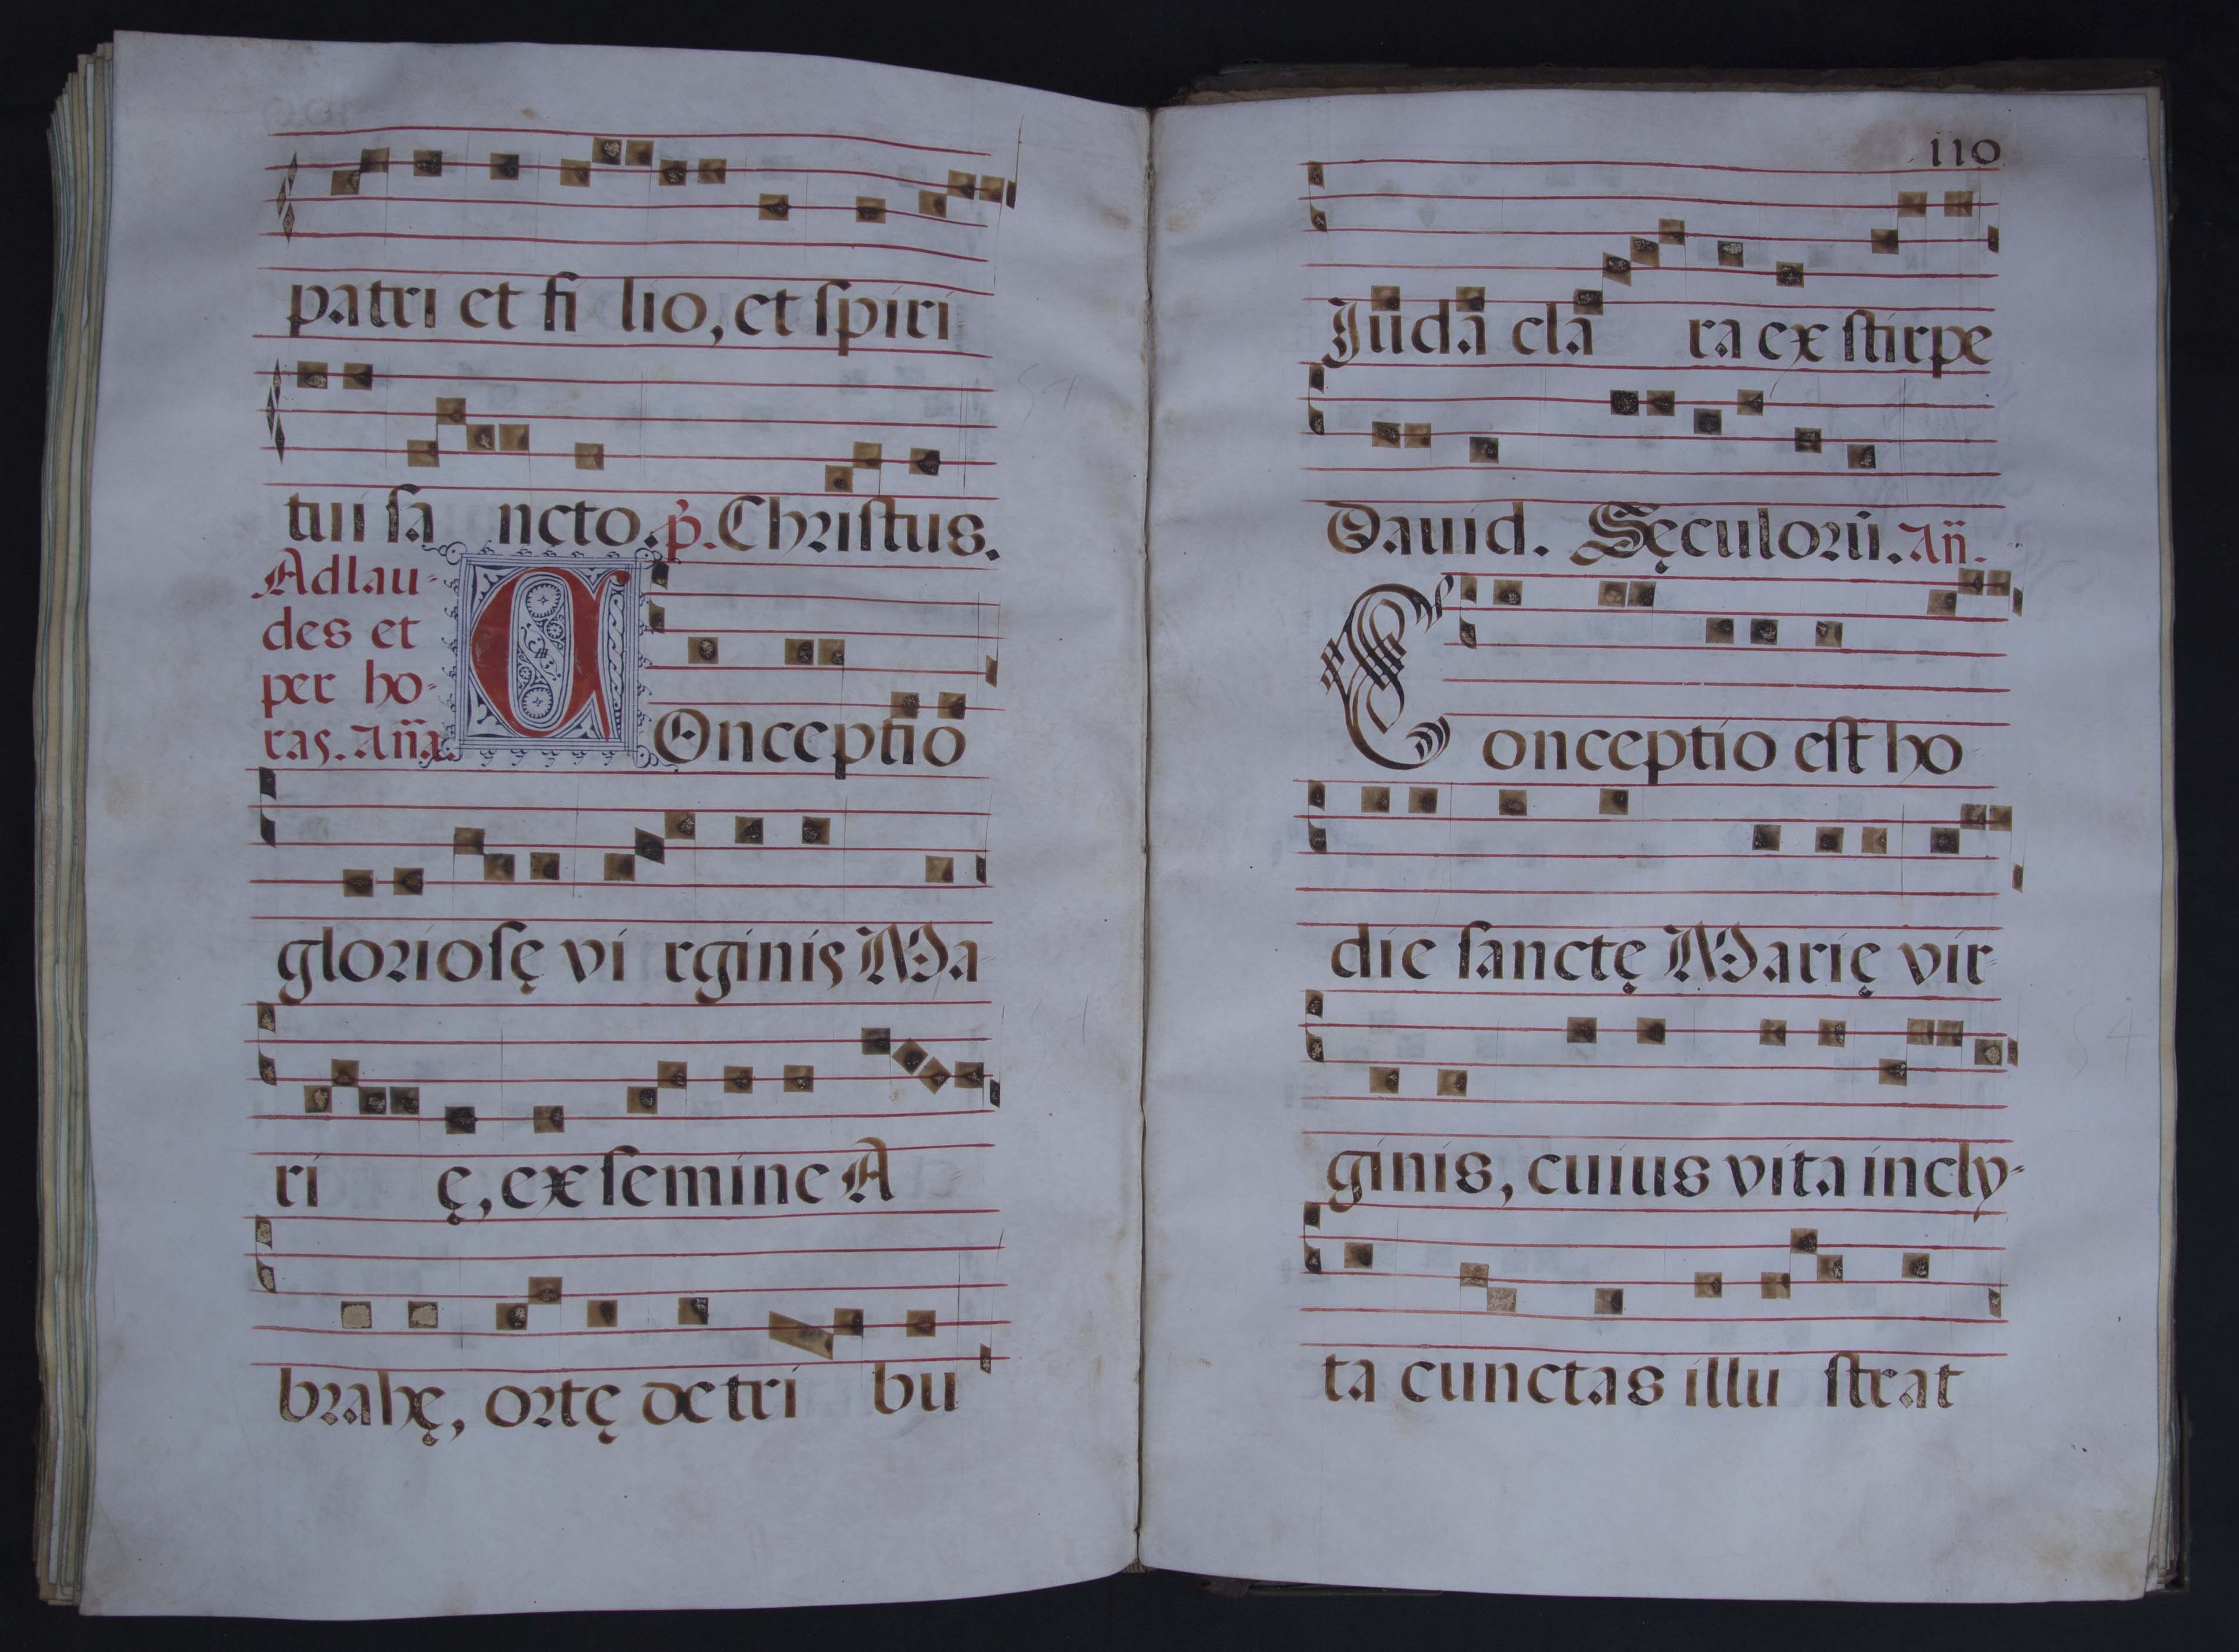 patri et fi lio, et ſpiri
tui ſa ncto. p̃. Chriſtus.
Ad lau-
des et
per ho-
ras. Añ̃a.
COnceptio
glorioſę vi rginis Ma-
ri ę, ex ſemine A
brahę, ortę de tri bu
110
Juda cla ra ex ſtirpe
Dauid. Sęculorũ. Añ.
Conceptio eſt ho-
die ſanctę Marię vir-
ginis, cuius vita incly-
ta cunctas illu ſtrat